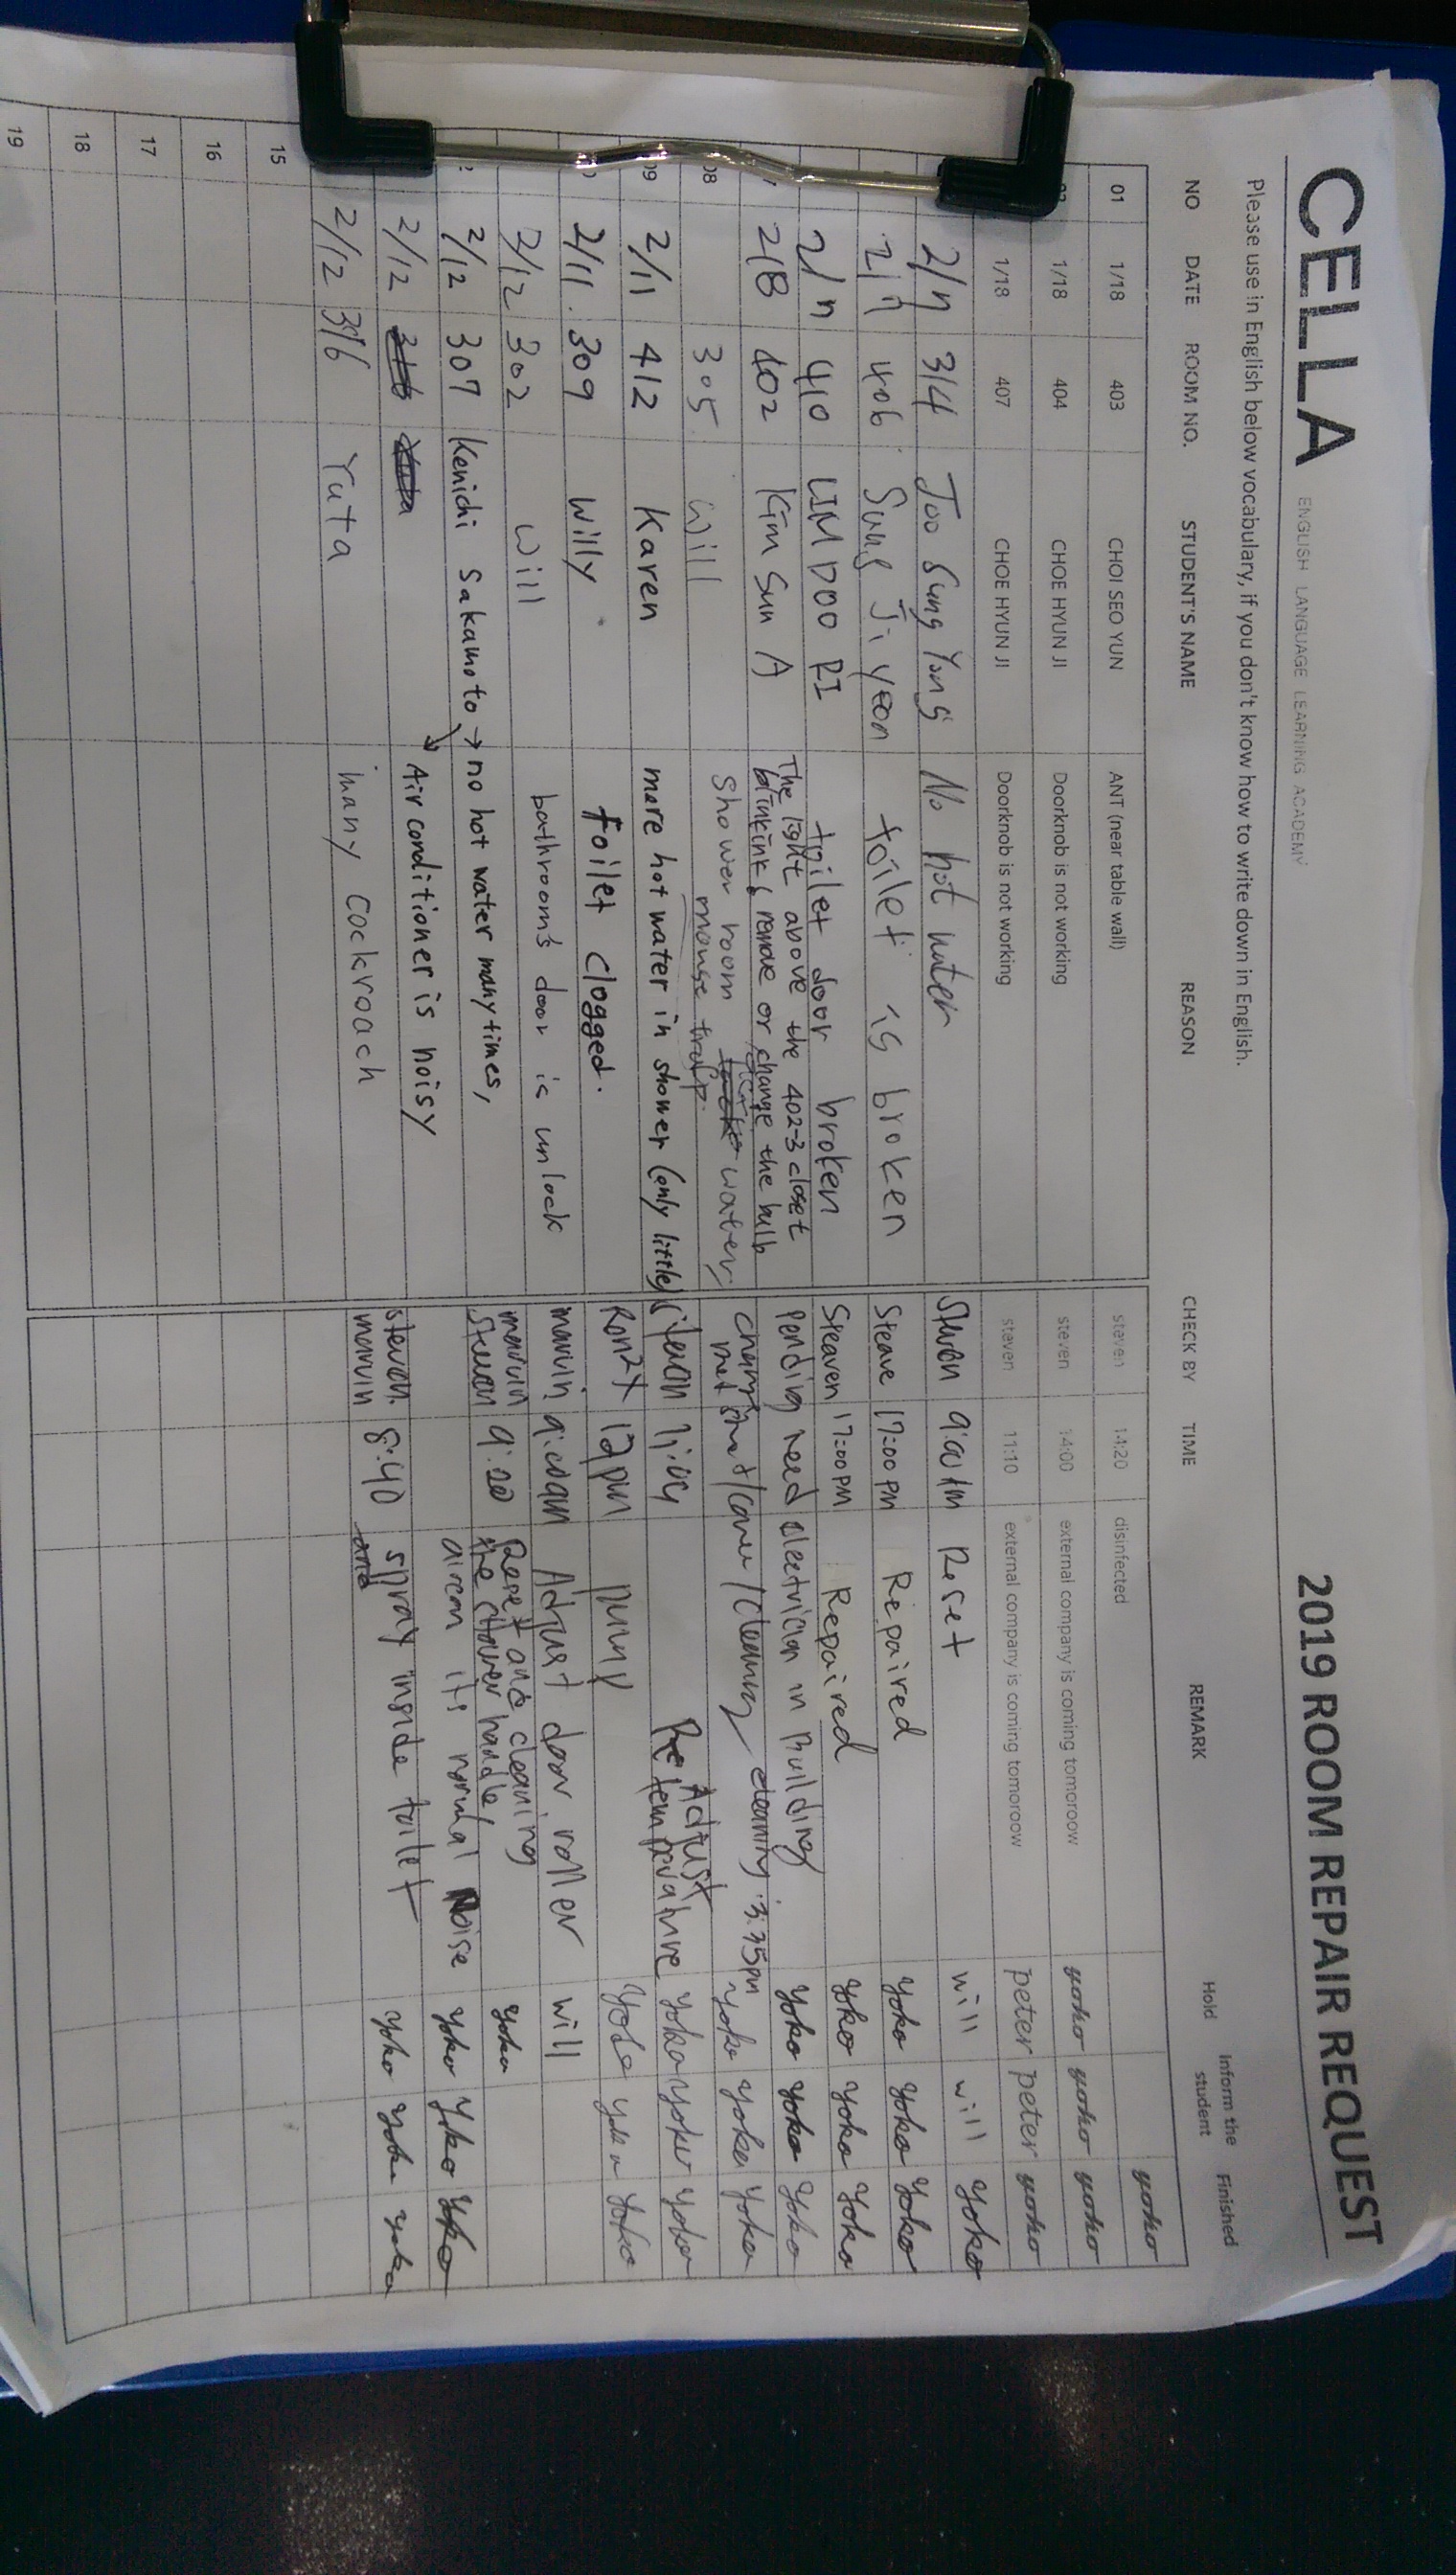 CELLA ENGLISH LANGUAGE LEARNING ACADEMY 2019 ROOM REPAIR REQUEST
Please use in English below vocabulary, if you don't know how to write down in English.
NO DATE ROOM NO. STUDENT'S NAME REASON CHECK BY TIME REMARK Hold Inform the student Finished
01 1/18 403 CHOI SEO YUN ANT (near table wall) steven 14:20 disinfected yoko
1/18 404 CHOE HYUN JI Doorknob is not working steven 14:00 external company is coming tomoroow yoko yoko yoko
1/18 407 CHOE HYUN JI Doorknob is not working steven 11:10 external company is coming tomoroow peter peter yoko
314 Joo Sung Yong No hot water Reset will will yoko
406 Sung Ji yeon toilet is broken Steave 17:00 PM Repaired yoko yoko yoko
410 LIM DOO RI toilet door broken Steaven 17:00 PM Repaired yoko yoko yoko
402 Kim Sun A The light above the 402-3 closet
change the bulb pending need electrician in Building yoko yoko yoko
08 305 Will shower room water
mouse trap cleaning 3:35pm yoko yoko yoko
09 2/11 412 Karen more hot water in shower (only little) Adjust
yoko yoko yoko
2/11. 309 Willy toilet clogged. 12pm yoko yoko yoko
2/12 302 Will bathroom's door is unlock marvin Adjust door roller will
2/12 307 Kenichi Sakamoto → no hot water many times, marvin 9:20 Reset and cleaning
the shower handle yoko
2/12 Air conditioner is noisy aircon its normal noise yoko yoko yoko
2/12 316 Yuta many cockroach steven
marvin 8:40 spray inside toilet yoko yoko yoko
15
16
17
18
19